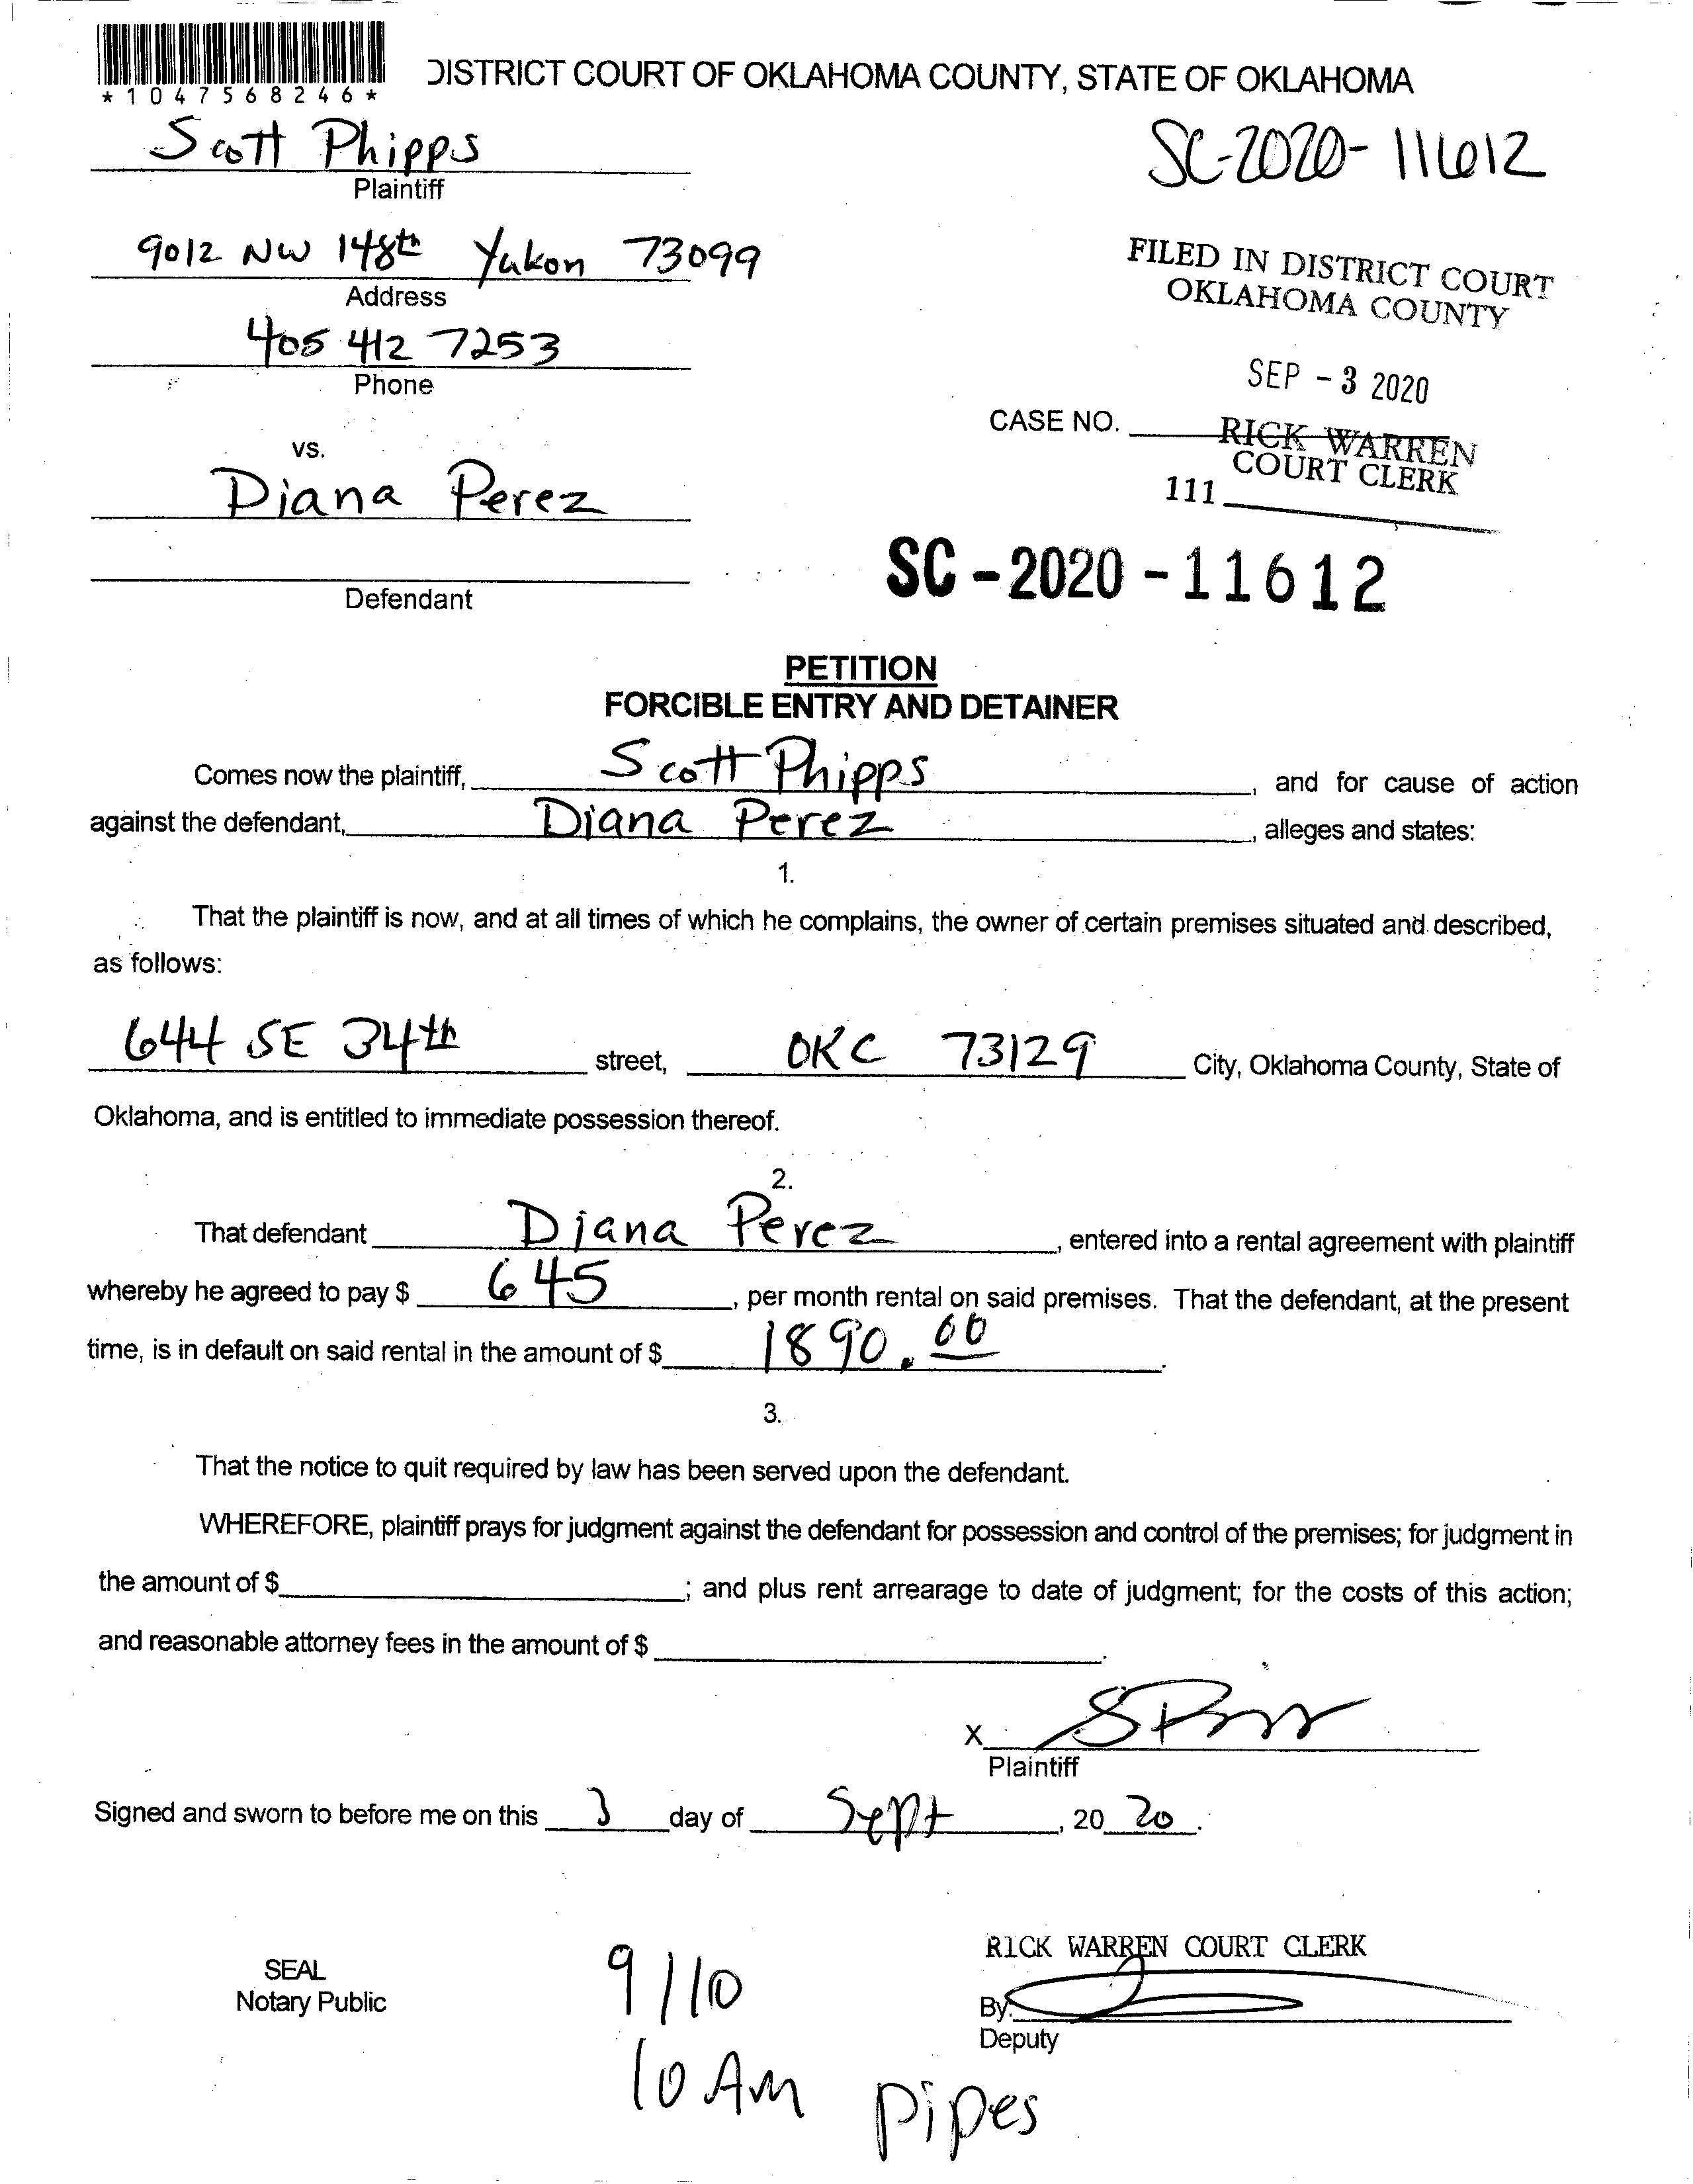 *1047568246*
DISTRICT COURT OF OKLAHOMA COUNTY, STATE OF OKLAHOMA
Scott Phipps
Plaintiff
SC-2020-11612
9012 NW 148th Yukon 73099
Address
FILED IN DISTRICT COURT
OKLAHOMA COUNTY
405 412 7253
Phone
SEP -3 2020
CASE NO.
RICK WARREN
COURT CLERK
111
vs.
Diana Perez
Defendant
SC-2020-11612
PETITION
FORCIBLE ENTRY AND DETAINER
Comes now the plaintiff, Scott Phipps, and for cause of action
against the defendant, Diana Perez, alleges and states:
1.
That the plaintiff is now, and at all times of which he complains, the owner of certain premises situated and described,
as follows:
644 SE 34th street, OKC 73129 City, Oklahoma County, State of
Oklahoma, and is entitled to immediate possession thereof.
2.
That defendant Diana Perez, entered into a rental agreement with plaintiff
whereby he agreed to pay $ 645, per month rental on said premises. That the defendant, at the present
time, is in default on said rental in the amount of $ 1890.00.
3.
That the notice to quit required by law has been served upon the defendant.
WHEREFORE, plaintiff prays for judgment against the defendant for possession and control of the premises; for judgment in
the amount of $ ; and plus rent arrearage to date of judgment; for the costs of this action;
and reasonable attorney fees in the amount of $ .
X
Plaintiff
Signed and sworn to before me on this 3 day of Sept, 20 20.
RICK WARREN COURT CLERK
SEAL
Notary Public
9/10
By:
Deputy
10 AM
Pipes